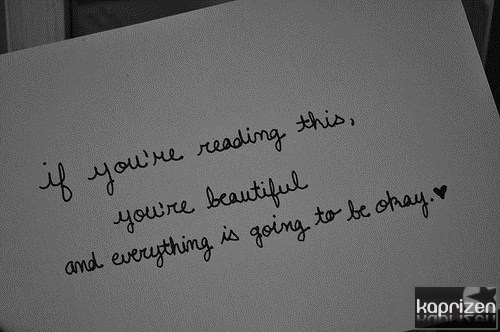 if you're reading this,
you're beautiful
and everything is going to be okay.♥
kaprizen